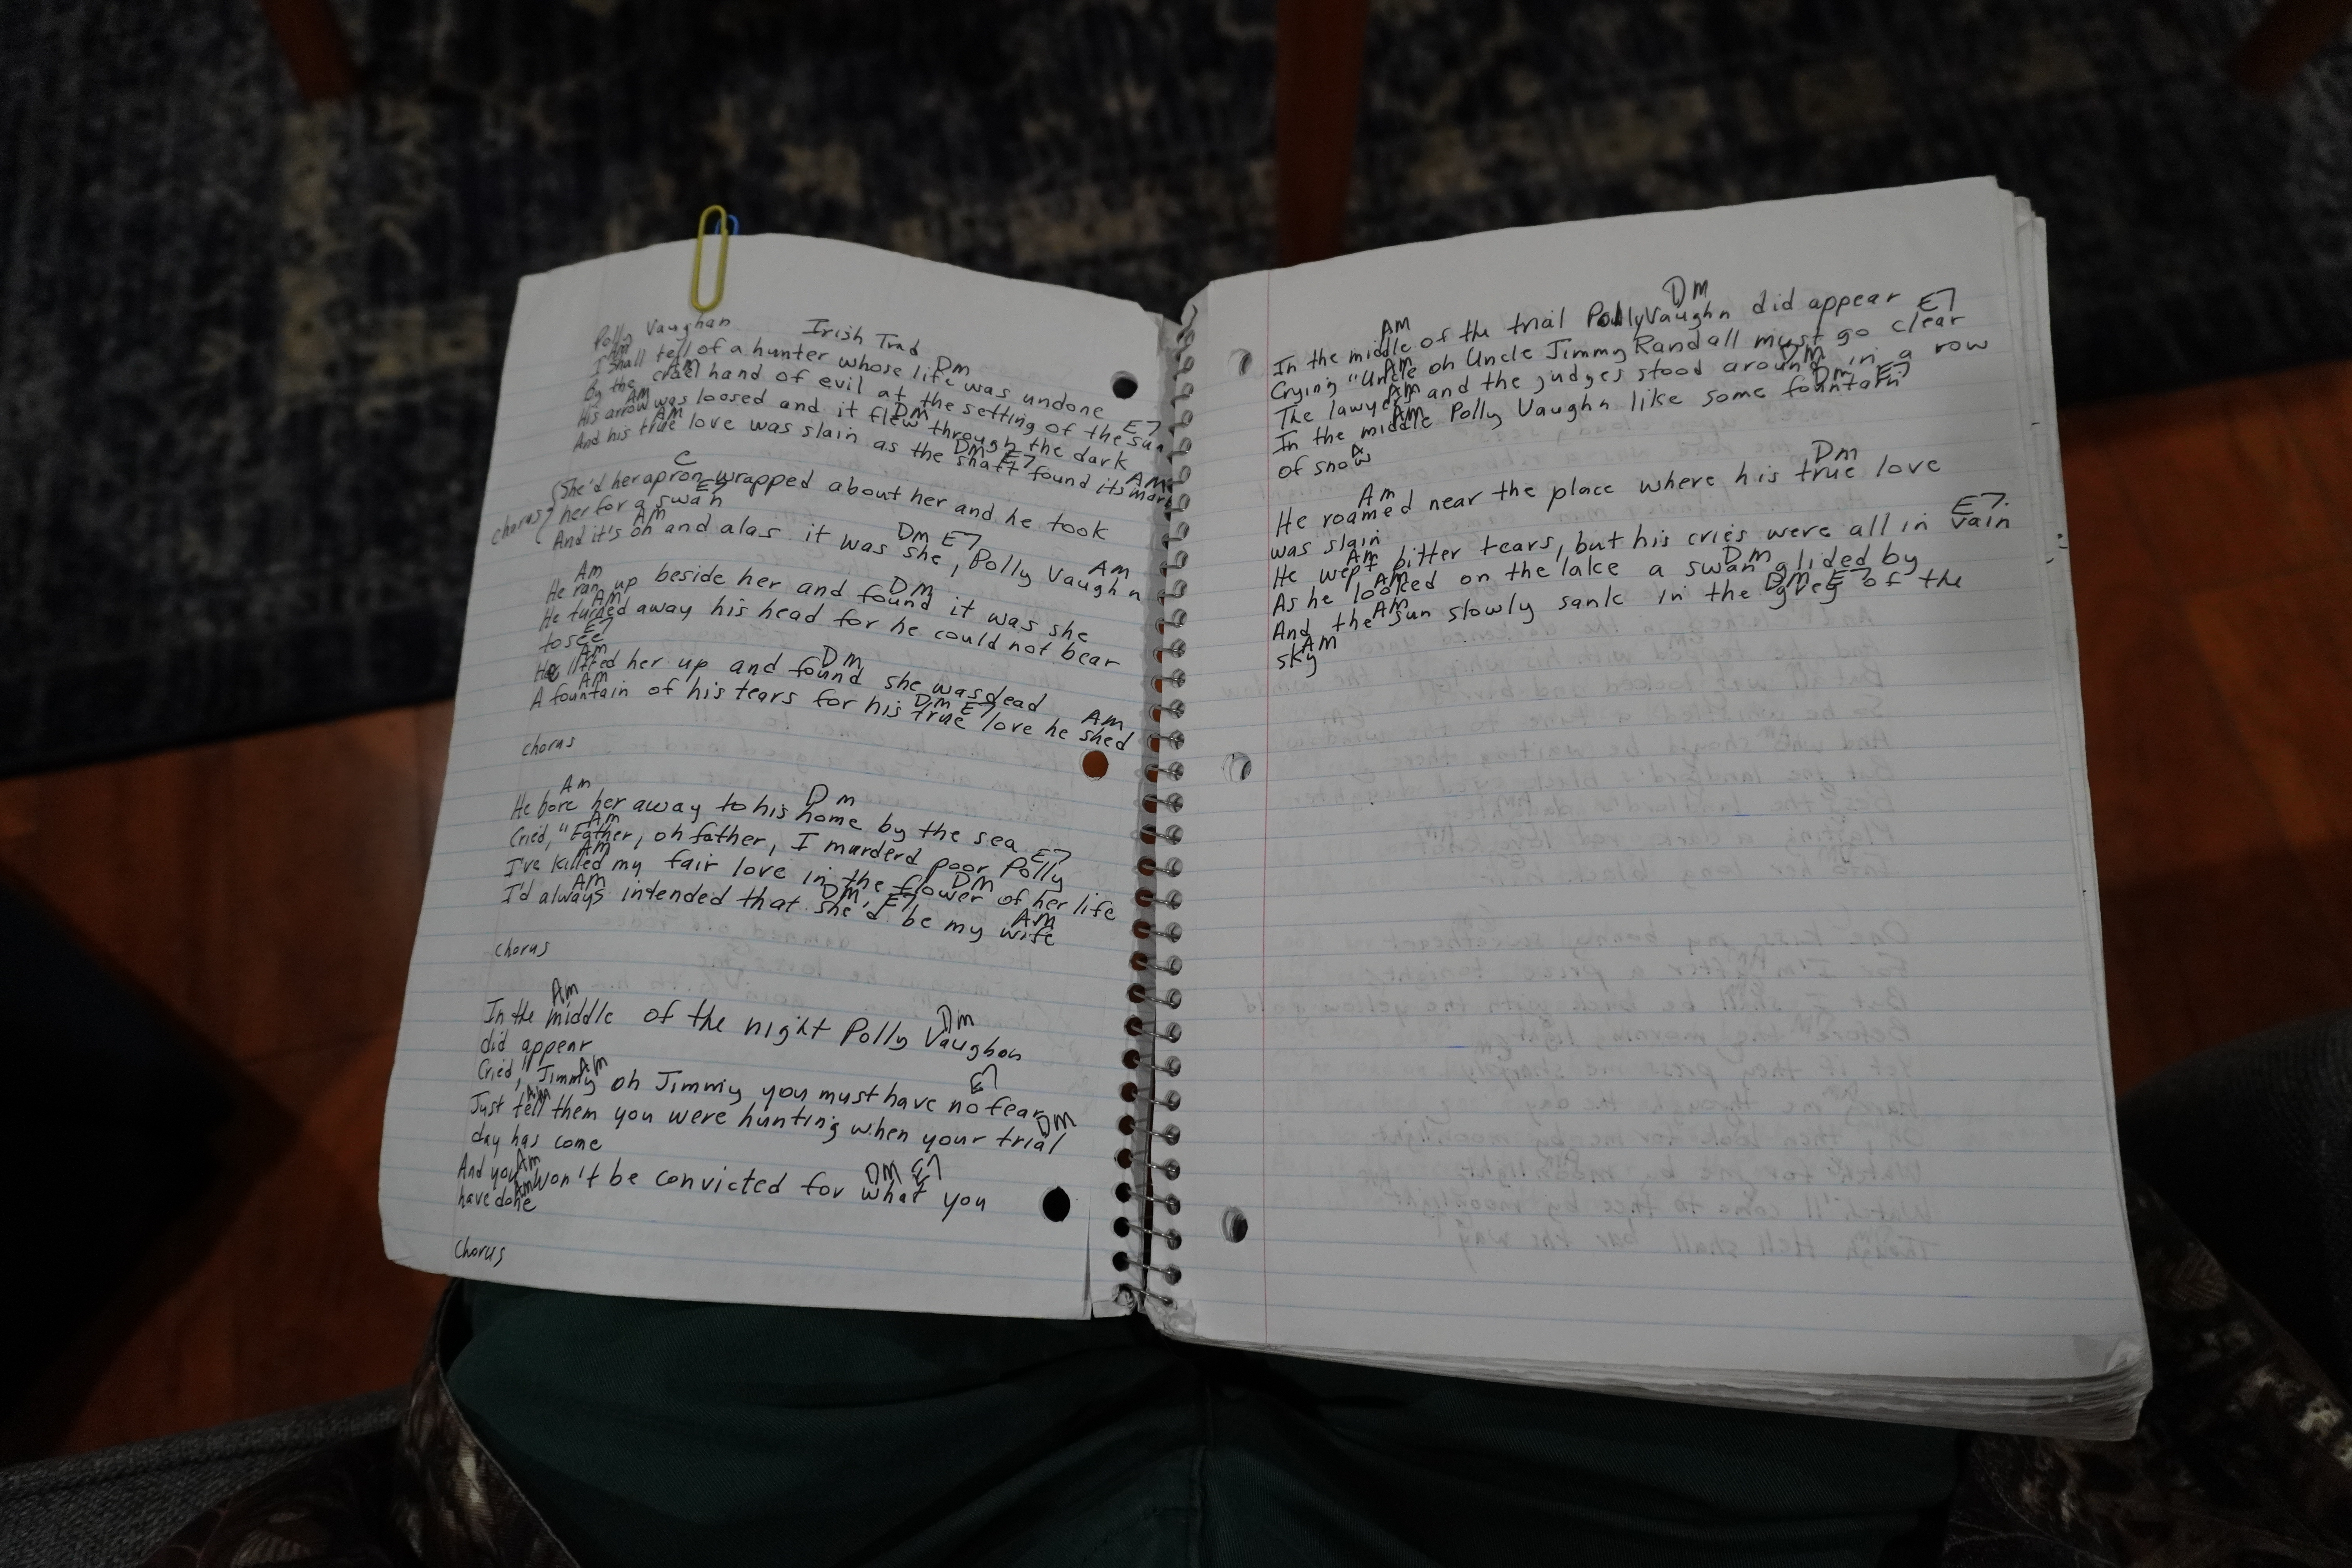 Polly Vaughan Irish Trad
Am Dm
I shall tell of a hunter whose life was undone
Am E7
By the cruel hand of evil at the setting of the sun
Am Dm
His arrow was loosed and it flew through the dark
Am Dm E7 Am
And his true love was slain as the shaft found its mark
C
chorus {She'd her apron wrapped about her and he took
E7
her for a swan
Am Dm E7 Am
And it's oh and alas it was she, Polly Vaughn
Am Dm
He ran up beside her and found it was she
Am
He turned away his head for he could not bear
E7
to see
Am Dm
He lifted her up and found she was dead
Am Dm E7 Am
A fountain of his tears for his true love he shed
chorus
Am Dm
He bore her away to his home by the sea
Am E7
Cried, "Father, oh father, I murderd poor Polly
Am Dm
I've killed my fair love in the flower of her life
Am Dm, E7 Am
I'd always intended that she'd be my wife
chorus
Am Dm
In the middle of the night Polly Vaughon
did appear
Am E7
Cried, "Jimmy oh Jimmy you must have no fear
Am Dm
Just tell them you were hunting when your trial
day has come
Am Dm E7
And you won't be convicted for what you
Am
have done
Chorus
Am Dm
In the middle of the trial Polly Vaughn did appear
Am E7
Crying "Uncle oh Uncle Jimmy Randall must go clear
Am Dm
The lawyers and the judges stood around in a row
Am Dm E7
In the middle Polly Vaughn like some fountain
A
of snow
Am Dm
He roamed near the place where his true love
was slain
Am E7.
He wept bitter tears, but his cries were all in vain
Am Dm
As he looked on the lake a swan glided by
Am Dm E7
And the sun slowly sank in the grey of the
Am
sky